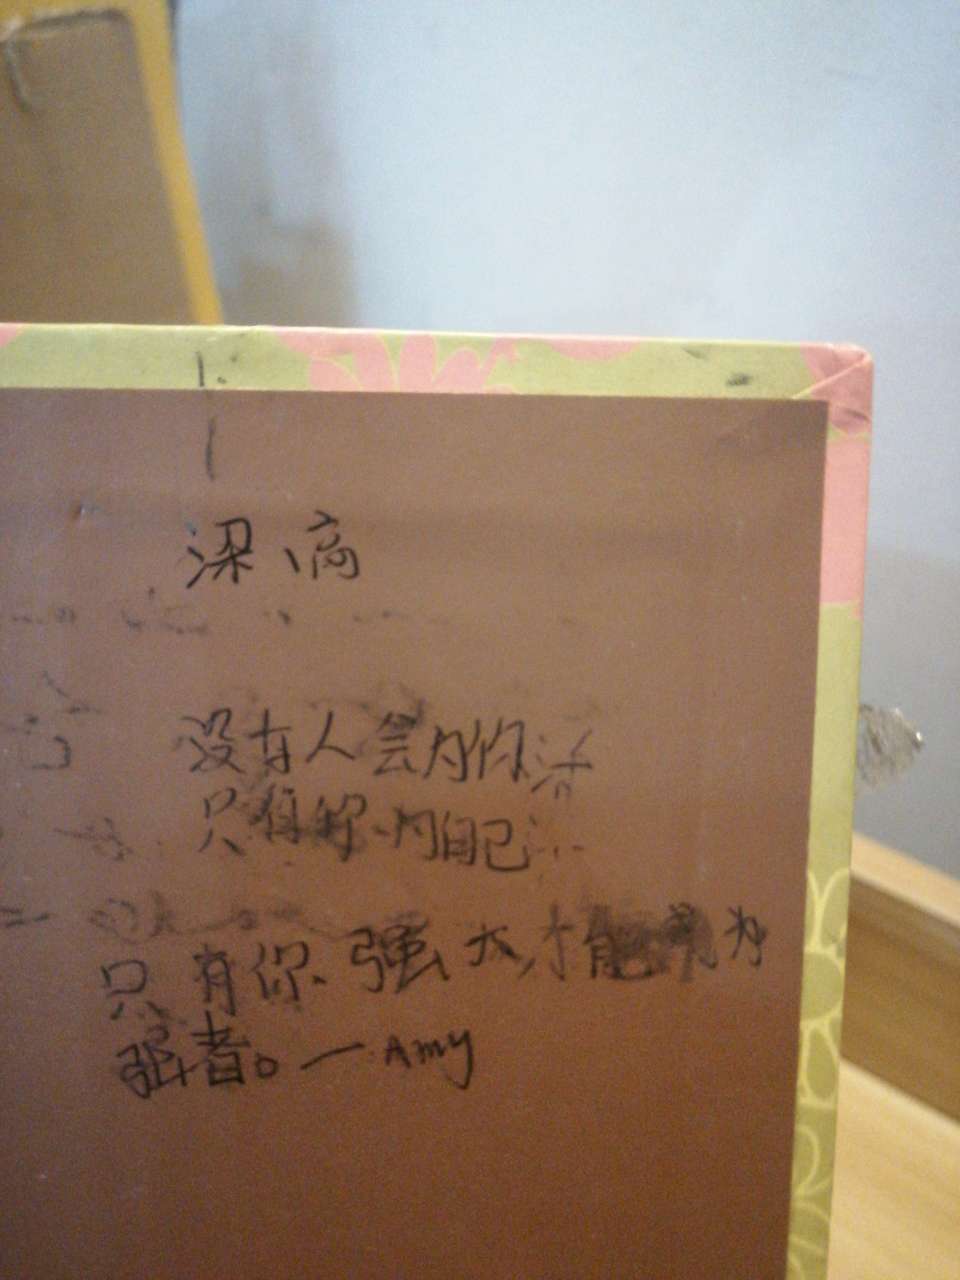 没有人会为你活
只有你为自己
只有你强大才能成为
强者。—Amy